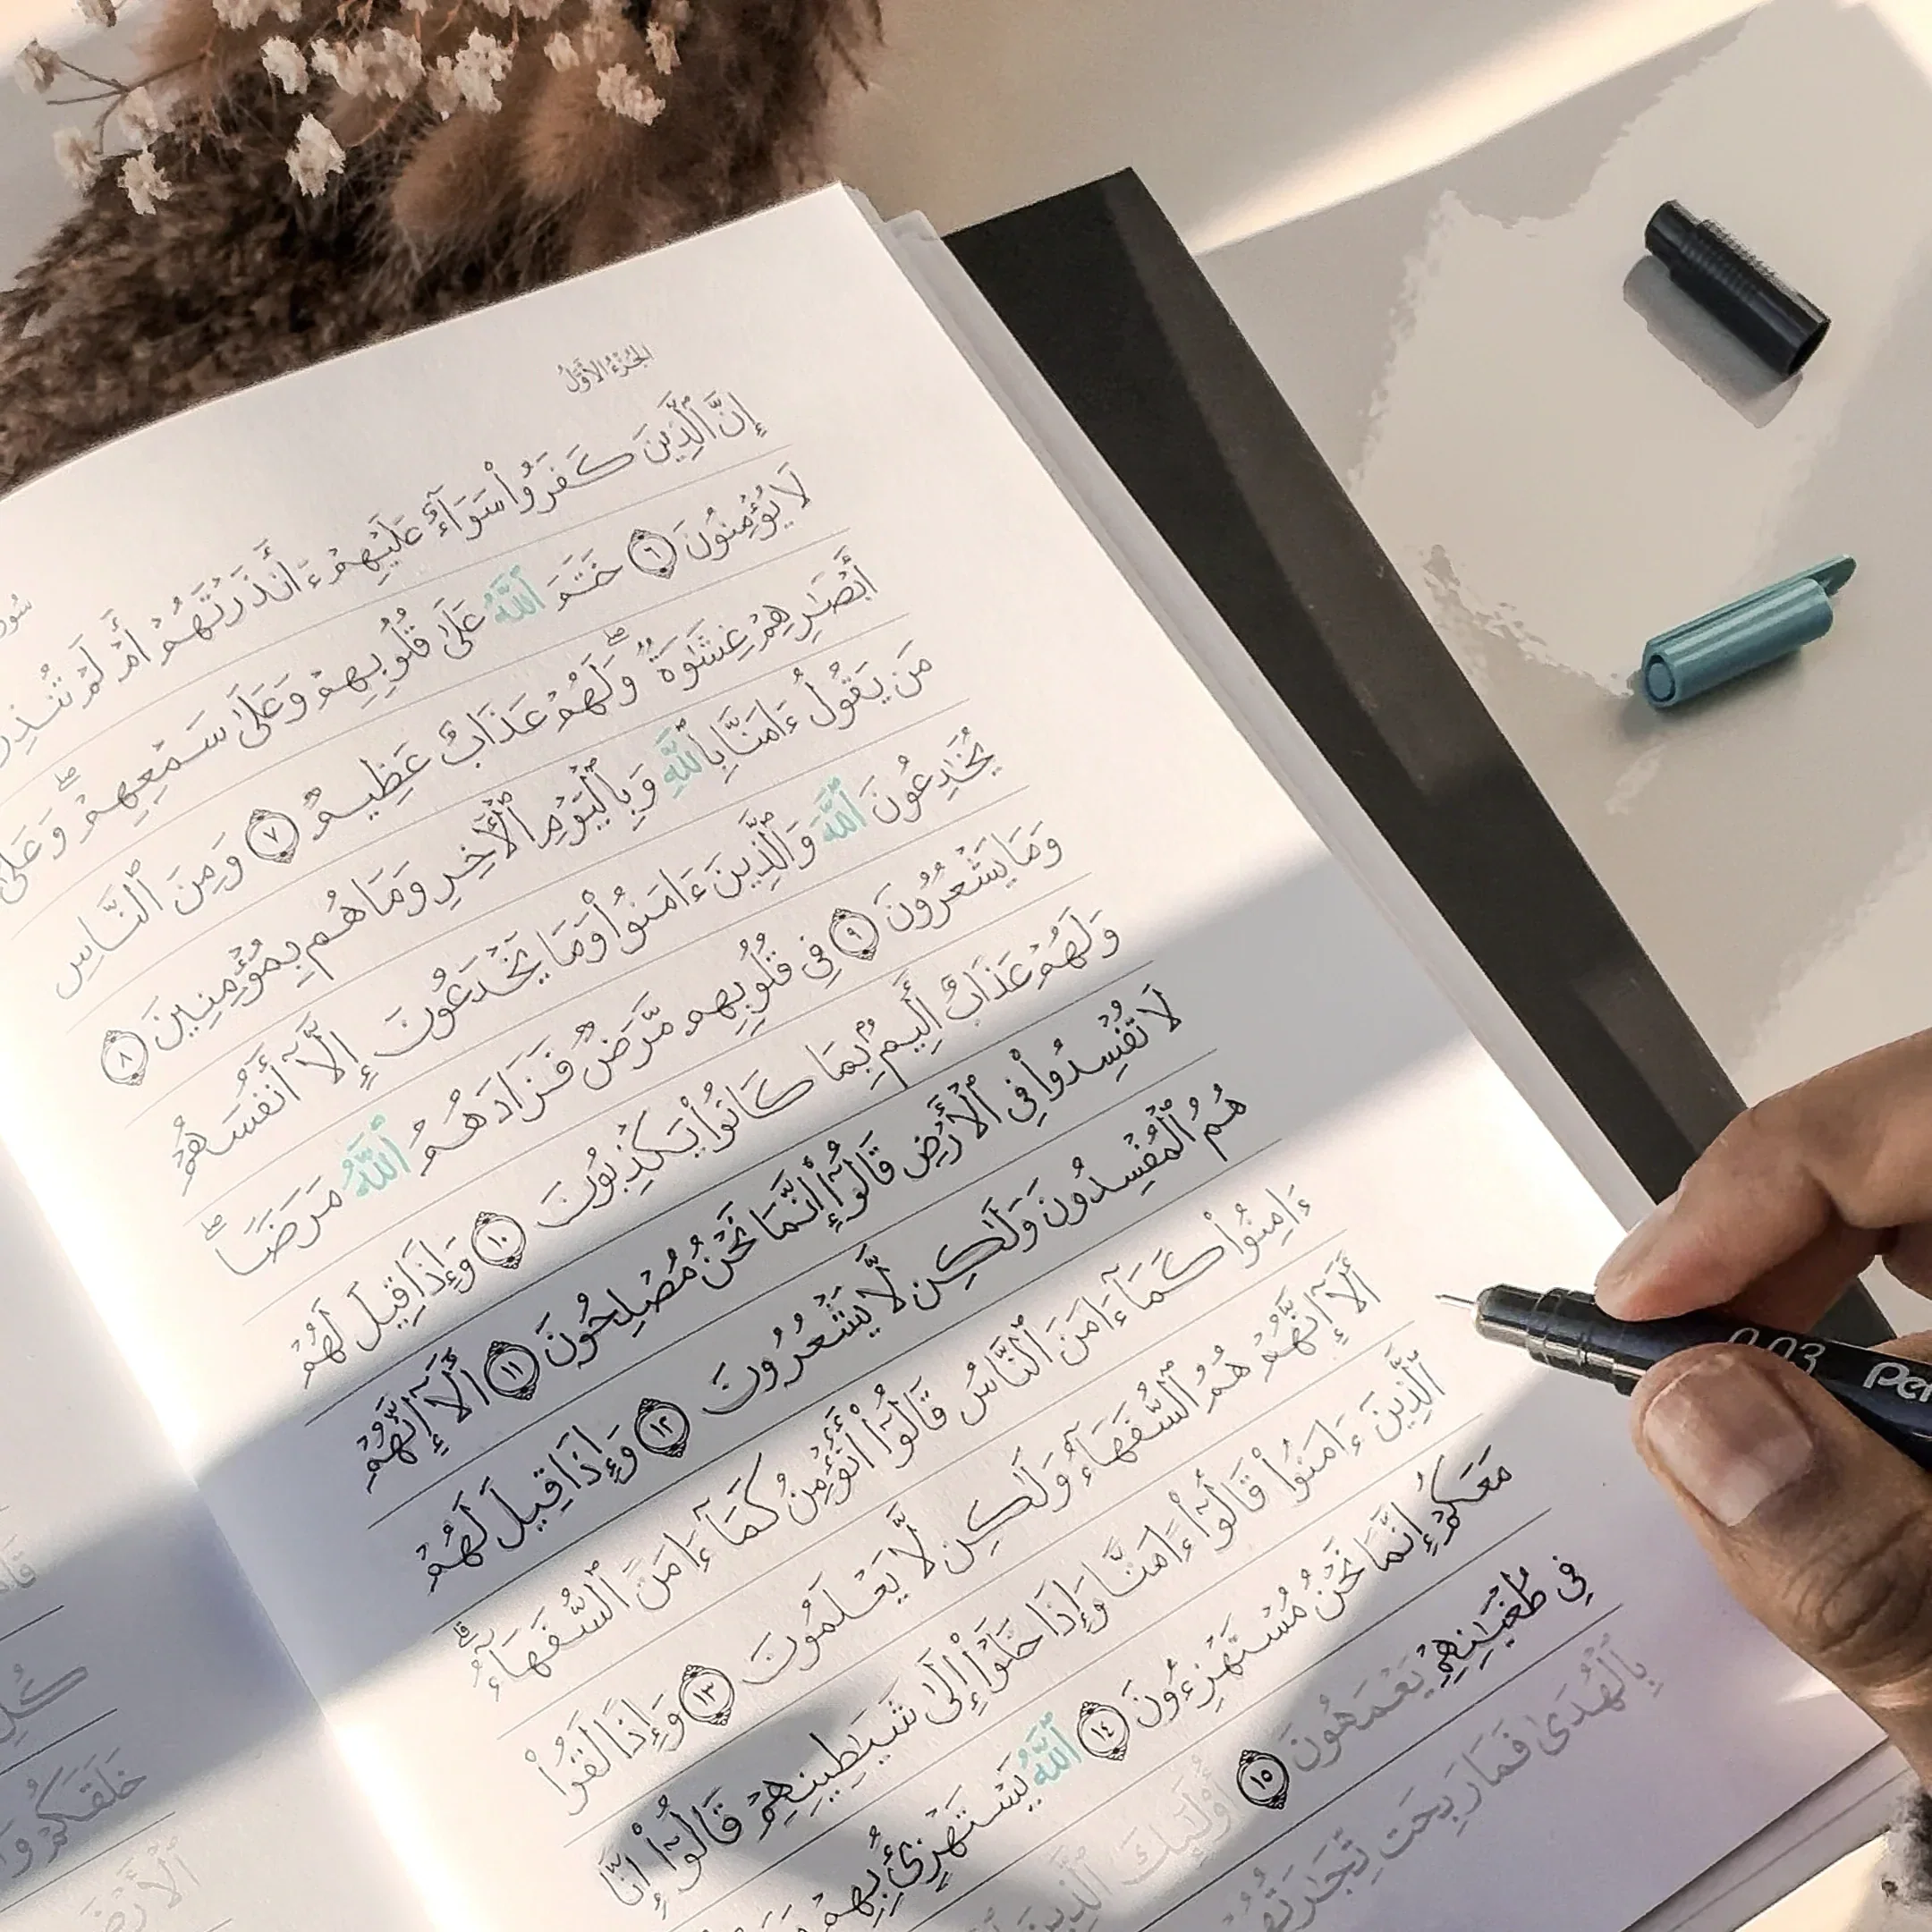 الجزء الأول
إِنَّ ٱلَّذِينَ كَفَرُوا۟ سَوَآءٌ عَلَيْهِمْ ءَأَنذَرْتَهُمْ أَمْ لَمْ
لَا يُؤْمِنُونَ ٦ خَتَمَ ٱللَّهُ عَلَىٰ قُلُوبِهِمْ وَعَلَىٰ سَمْعِهِمْ ۖ وَعَلَىٰ
أَبْصَٰرِهِمْ غِشَٰوَةٌ ۖ وَلَهُمْ عَذَابٌ عَظِيمٌ ٧ وَمِنَ ٱلنَّاسِ
مَن يَقُولُ ءَامَنَّا بِٱللَّهِ وَبِٱلْيَوْمِ ٱلْءَاخِرِ وَمَا هُم بِمُؤْمِنِينَ ٨
يُخَٰدِعُونَ ٱللَّهَ وَٱلَّذِينَ ءَامَنُوا۟ وَمَا يَخْدَعُونَ إِلَّآ أَنفُسَهُمْ
وَمَا يَشْعُرُونَ ٩ فِى قُلُوبِهِم مَّرَضٌ فَزَادَهُمُ ٱللَّهُ مَرَضًا ۖ
وَلَهُمْ عَذَابٌ أَلِيمٌۢ بِمَا كَانُوا۟ يَكْذِبُونَ ١٠ وَإِذَا قِيلَ لَهُمْ
لَا تُفْسِدُوا۟ فِى ٱلْأَرْضِ قَالُوٓا۟ إِنَّمَا نَحْنُ مُصْلِحُونَ ١١ أَلَآ إِنَّهُمْ
هُمُ ٱلْمُفْسِدُونَ وَلَٰكِن لَّا يَشْعُرُونَ ١٢ وَإِذَا قِيلَ لَهُمْ
ءَامِنُوا۟ كَمَآ ءَامَنَ ٱلنَّاسُ قَالُوٓا۟ أَنُؤْمِنُ كَمَآ ءَامَنَ ٱلسُّفَهَآءُ ۗ
أَلَآ إِنَّهُمْ هُمُ ٱلسُّفَهَآءُ وَلَٰكِن لَّا يَعْلَمُونَ ١٣ وَإِذَا لَقُوا۟
ٱلَّذِينَ ءَامَنُوا۟ قَالُوٓا۟ ءَامَنَّا وَإِذَا خَلَوْا۟ إِلَىٰ شَيَٰطِينِهِمْ قَالُوٓا۟ إِنَّا
مَعَكُمْ إِنَّمَا نَحْنُ مُسْتَهْزِءُونَ ١٤ ٱللَّهُ يَسْتَهْزِئُ بِهِمْ
فِى طُغْيَٰنِهِمْ يَعْمَهُونَ ١٥ أُو۟لَٰٓئِكَ ٱلَّذِينَ
بِٱلْهُدَىٰ فَمَا رَبِحَت
0.03